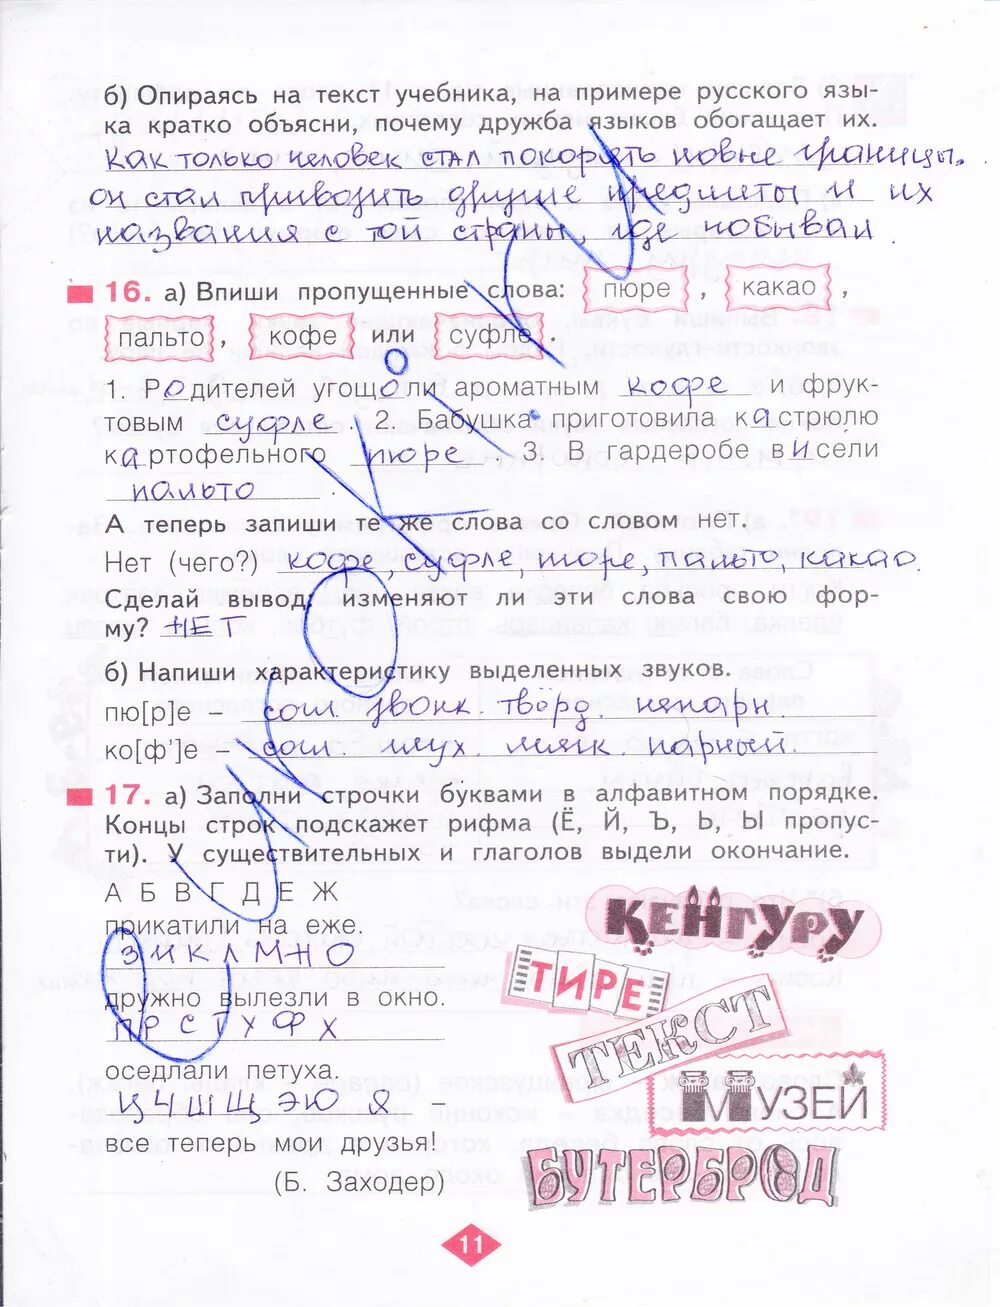 б) Опираясь на текст учебника, на примере русского язы-
ка кратко объясни, почему дружба языков обогащает их.
Как только человек стал покорять новые границы,
он стал привозить другие предметы и их
названия с той страны, где побывал
16. а) Впиши пропущенные слова: пюре , какао ,
пальто , кофе или суфле .
1. Родителей угощали ароматным кофе и фрук-
товым суфле . 2. Бабушка приготовила кастрюлю
картофельного пюре . 3. В гардеробе висели
пальто .
А теперь запиши те же слова со словом нет.
Нет (чего?) кофе, суфле, пюре, пальто, какао.
Сделай вывод, изменяют ли эти слова свою фор-
му? НЕТ
б) Напиши характеристику выделенных звуков.
пю[р]е – согл. звонк. твёрд. непарн.
ко[ф']е – согл. глух. мягк. парный.
17. а) Заполни строчки буквами в алфавитном порядке.
Концы строк подскажет рифма (Ё, Й, Ъ, Ь, Ы пропус-
ти). У существительных и глаголов выдели окончание.
А Б В Г Д Е Ж
прикатили на еже.
З И К Л М Н О
дружно вылезли в окно.
П Р С Т У Ф Х
оседлали петуха.
Ц Ч Ш Щ Э Ю Я –
все теперь мои друзья!
(Б. Заходер)
КЕНГУРУ
ТИРЕ
ТЕКСТ
МУЗЕЙ
БУТЕРБРОД
11